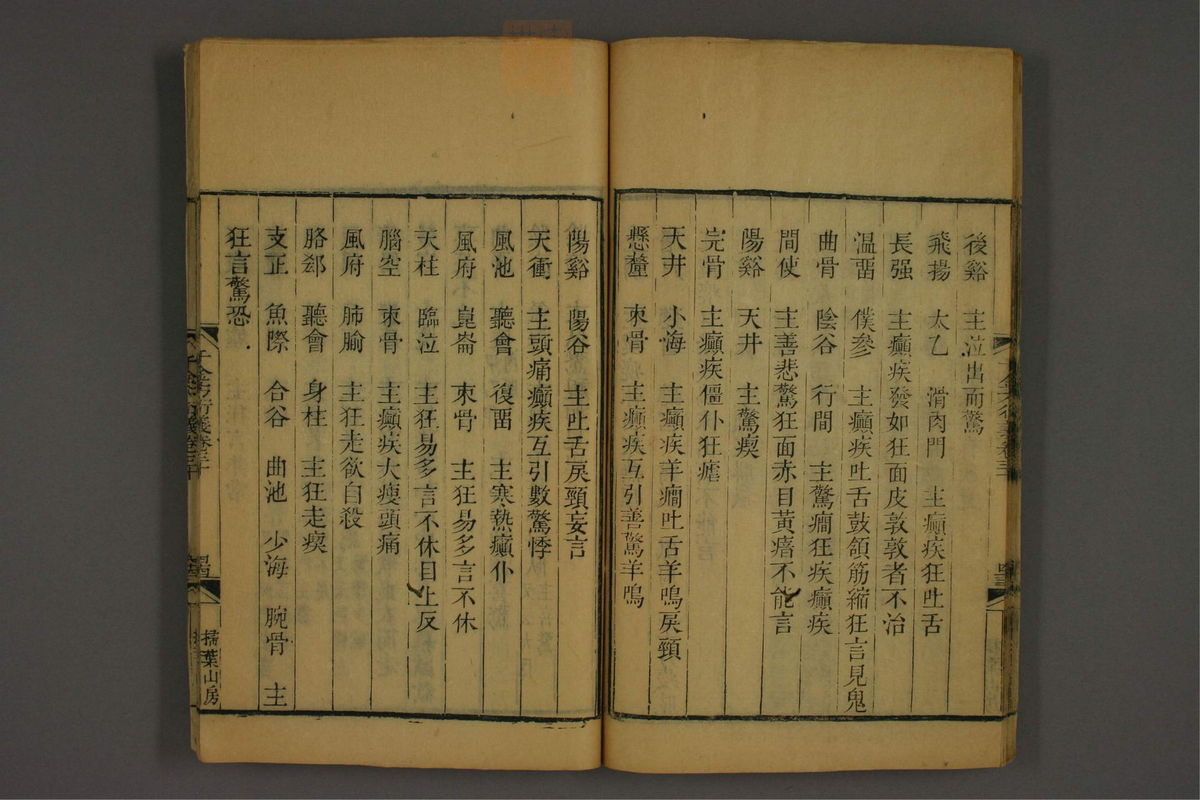 後谿 主泣出而驚
飛揚 太乙 滑肉門 主癲疾狂吐舌
長强 主癲疾發如狂面皮敦敦者不治
溫畱 僕參 主癲疾吐舌鼓頷筋縮狂言見鬼
曲骨 陰谷 行間 主驚癎狂疾癲疾
間使 主善悲驚狂面赤目黃瘖不能言
陽谿 天井 主驚瘈
完骨 主癲疾僵仆狂瘧
天井 小海 主癲疾羊癎吐舌羊鳴戾頸
懸釐 束骨 主癲疾互引善驚羊鳴
陽谿 陽谷 主吐舌戾頸妄言
天衝 主頭痛癲疾互引數驚悸
風池 聽會 復畱 主寒熱癲仆
風府 崑崙 束骨 主狂易多言不休
天柱 臨泣 主狂易多言不休目上反
腦空 束骨 主癲疾大瘦頭痛
風府 肺腧 主狂走欲自殺
胳郄 聽會 身柱 主狂走瘈
支正 魚際 合谷 曲池 少海 腕骨 主
狂言驚恐
千金方衍義卷三十
掃葉山房